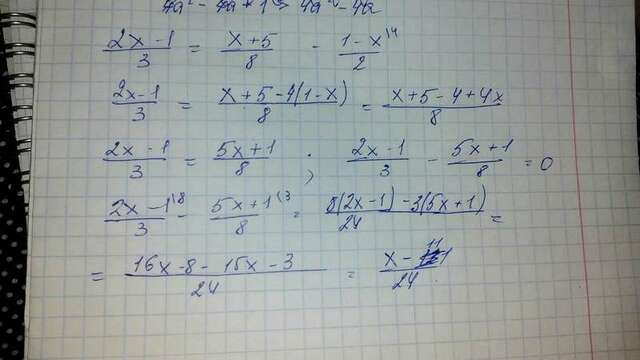 4a² - 4a + 1 > 4a² - 4a
(2x-1)/3 = (x+5)/8 - (1-x)/2 \4
(2x-1)/3 = (x+5-4(1-x))/8 = (x+5-4+4x)/8
(2x-1)/3 = (5x+1)/8 ; (2x-1)/3 - (5x+1)/8 = 0
(2x-1)/3 \8 - (5x+1)/8 \3 = (8(2x-1)-3(5x+1))/24 =
= (16x-8-15x-3)/24 = (x-11)/24